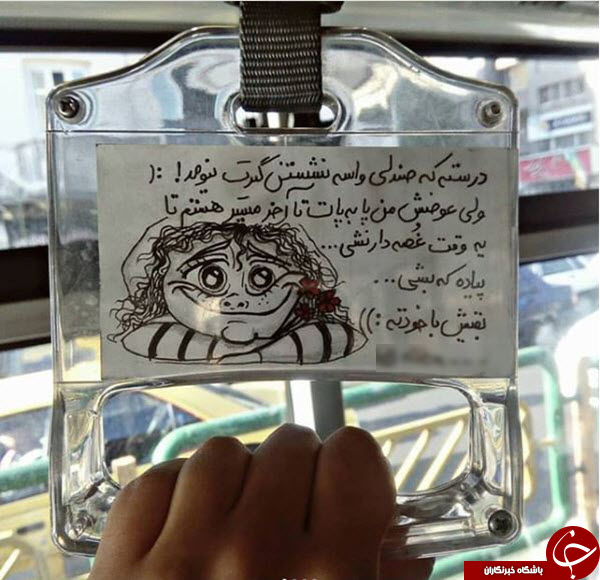 درسته که صندلی واسه نشستن گیرت نیومد! :(
ولی عوضش من پا به پات تا آخر مسیر هستم تا
یه وقت غُصه دار نشی...
پیاده که بشی...
بقیش با خودته :))
باشگاه خبرنگاران